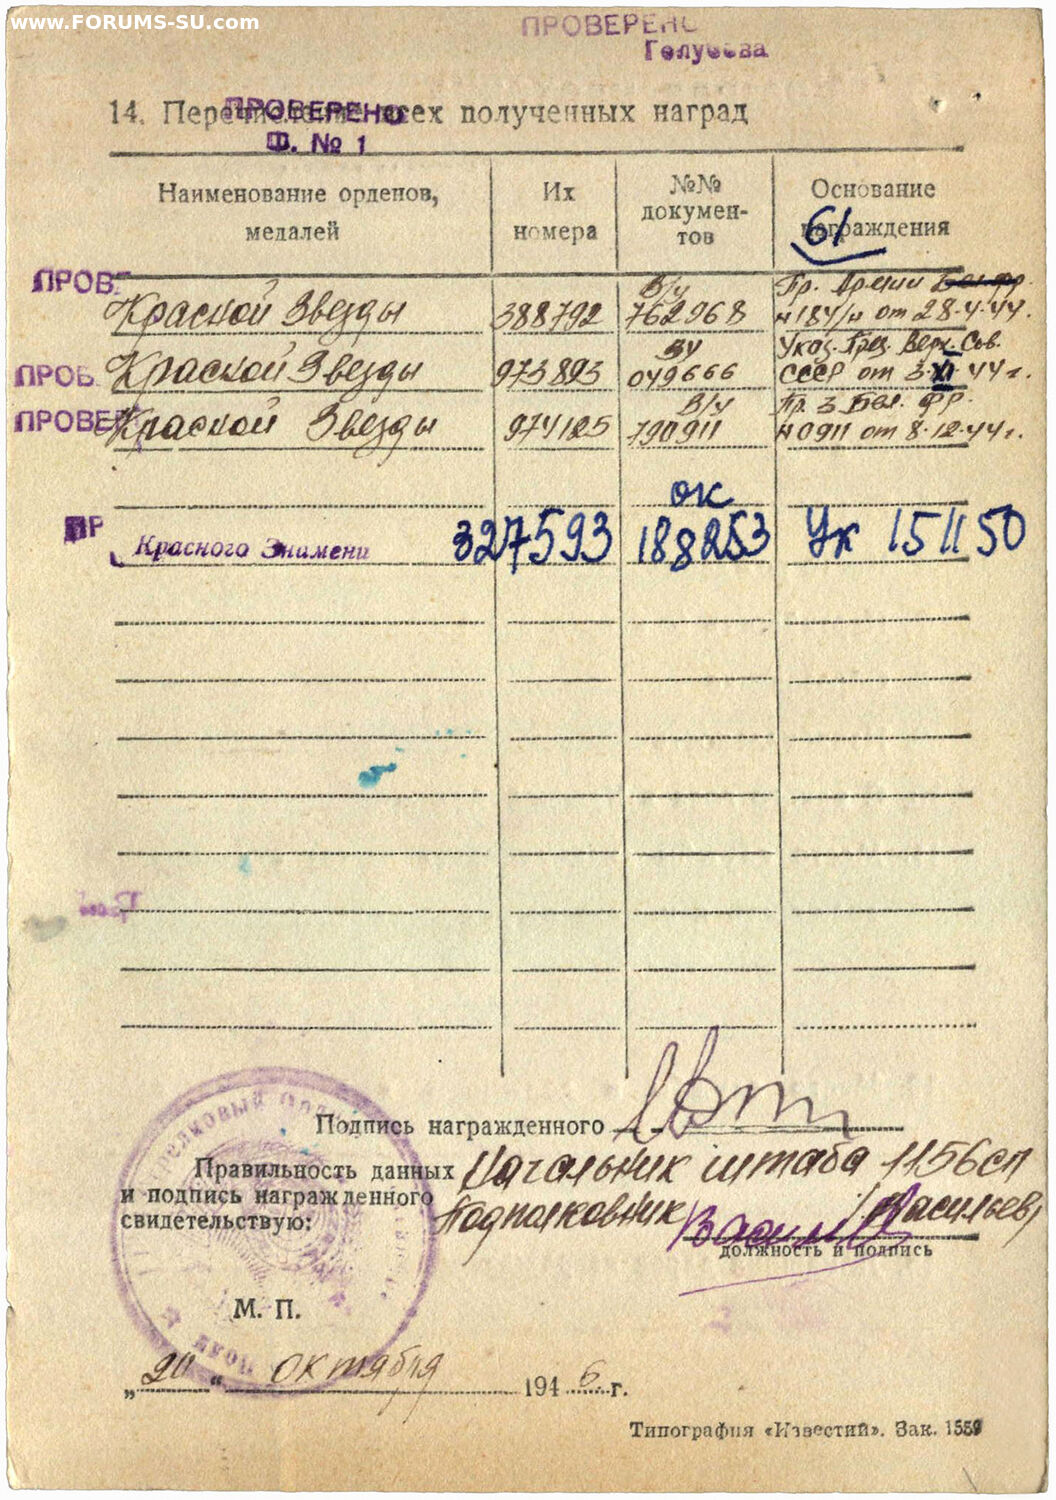 www.FORUMS-SU.com
ПРОВЕРЕНО
Голубева
14. Перечисление всех полученных наград
ПРОВЕРЕНО
Ф. № 1
Наименование орденов, медалей
Их номера
№№ докумен-тов
Основание награждения
61
ПРОВ
Красной Звезды 388792 В/ч 762968 Пр. Армии Бел. фр. н 184/н от 28.4.44г.
ПРОВ
Красной Звезды 973893 ву 049666 Указ. През. Верх. Сов. СССР от 3.XI 44г.
ПРОВЕР
Красной Звезды 974185 В/ч 790911 Пр. 3 Бел. фр. н 0911 от 8.12.44г.
ПР
Красного Знамени 327593 ок 188253 Ук 15 11 50
Подпись награжденного
Правильность данных
и подпись награжденного
свидетельствую:
Начальник штаба 1156 сп
Подполковник /Васильев/
должность и подпись
М. П.
„20“ октября 1946 г.
Типография «Известий». Зак. 1559